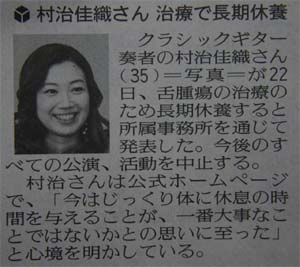 村治佳織さん 治療で長期休養
クラシックギター
奏者の村治佳織さん
(35)=写真=が22
日、舌腫瘍の治療の
ため長期休養すると
所属事務所を通じて
発表した。今後のす
べての公演、活動を中止する。
村治さんは公式ホームページ
で、「今はじっくり体に休息の時
間を与えることが、一番大事なこ
とではないかとの思いに至った」
と心境を明かしている。